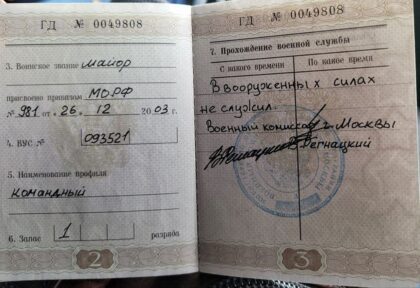 ГД № 0049808
3. Воинское звание майор
присвоено приказом МО РФ
№ 981 от « 26 » 12 2003 г.
4. ВУС № 093521
5. Наименование профиля
Командный
6. Запас 1 разряда
2
ГД № 0049808
7. Прохождение военной службы
С какого времени По какое время
В вооруженных силах
не служил.
Военный комиссар г. Москвы
Регнацкий
3